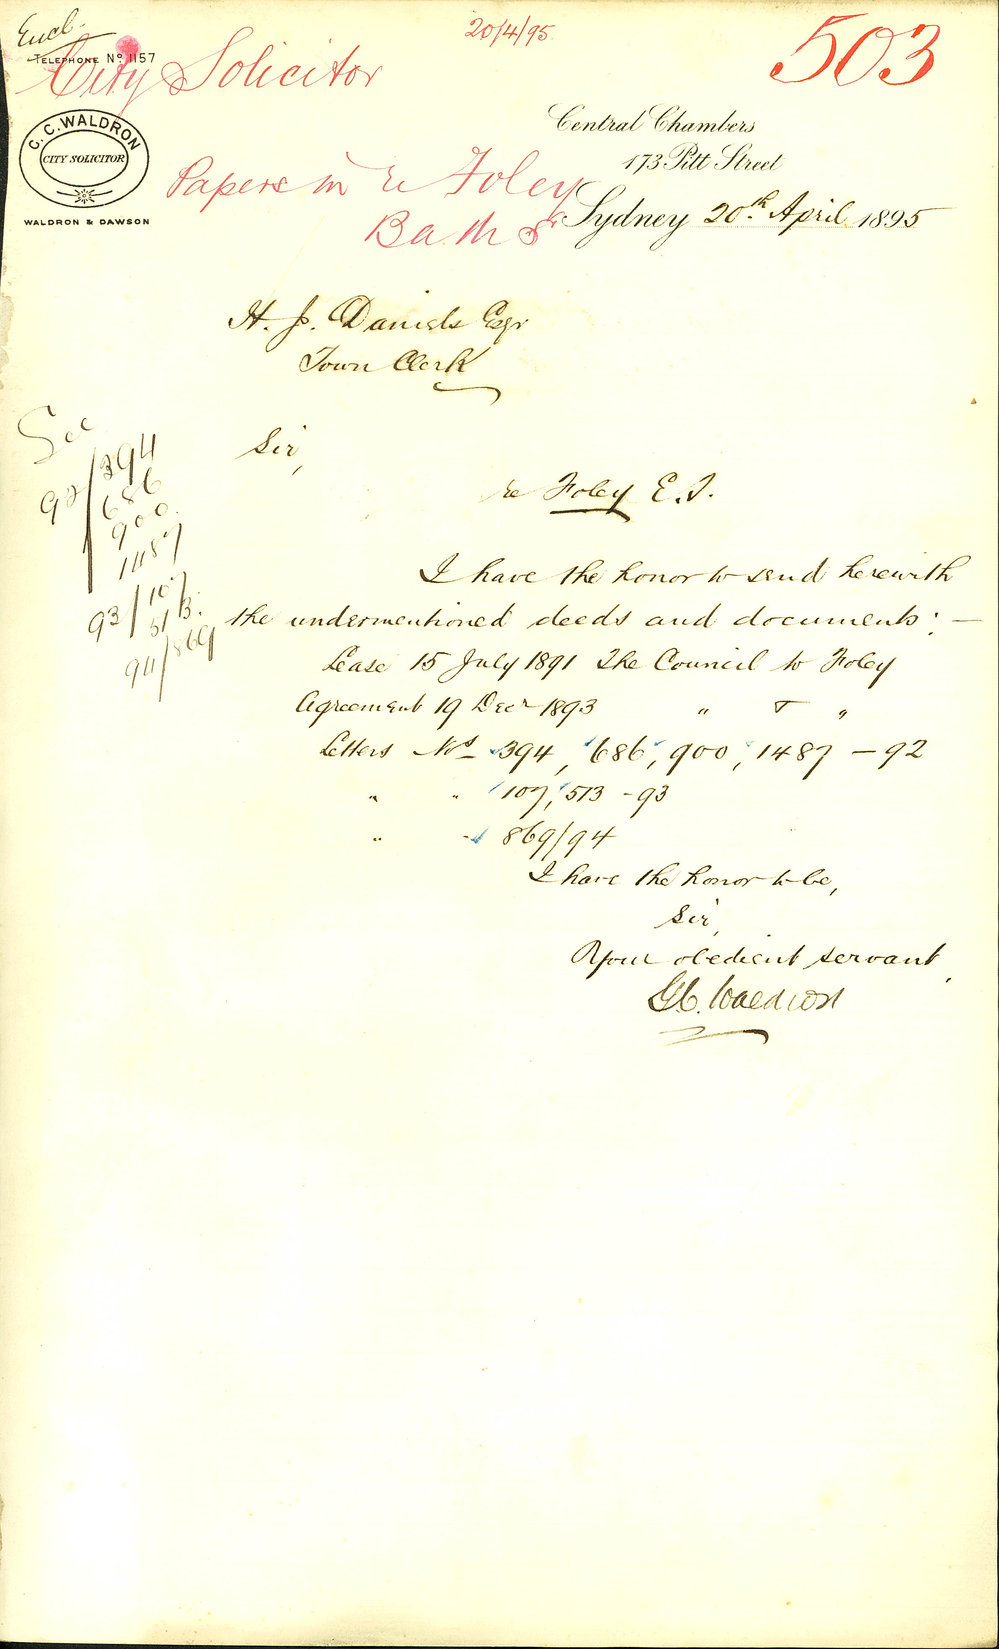 Encl.
20/4/95
503
TELEPHONE No 1157
City Solicitor
C. C. WALDRON
CITY SOLICITOR
WALDRON & DAWSON
Central Chambers
173 Pitt Street
Papers in re Foley
Baths
Sydney 20th April 1895
H. J. Daniels Esqr
Town Clerk
See
92/394
686
900
1487
93/107
513
94/869
Sir,
re Foley E. J.
I have the honor to send herewith
the undermentioned deeds and documents:—
Lease 15 July 1891 The Council to Foley
Agreement 19 Decr 1893 " "
Letters Nos 394, 686, 900, 1487 - 92
" " 107, 513 - 93
" " 869/94
I have the honor to be,
Sir,
Your obedient servant,
C. C. Waldron